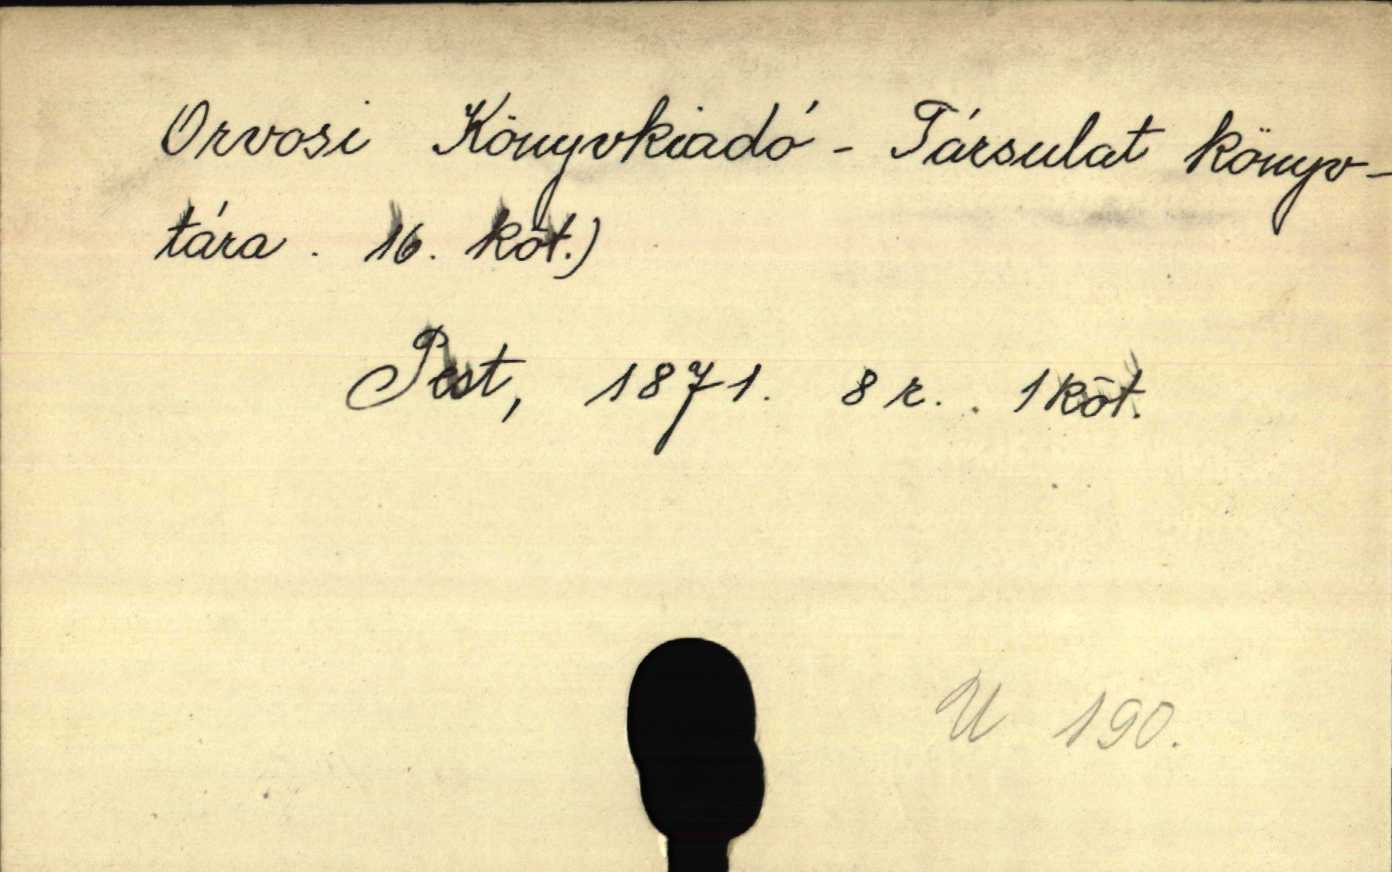 Orvosi Könyvkiadó - Társulat könyv-
tára. 16. köt.)
Pest, 1871. 8 r. . 1 köt.
U 190.